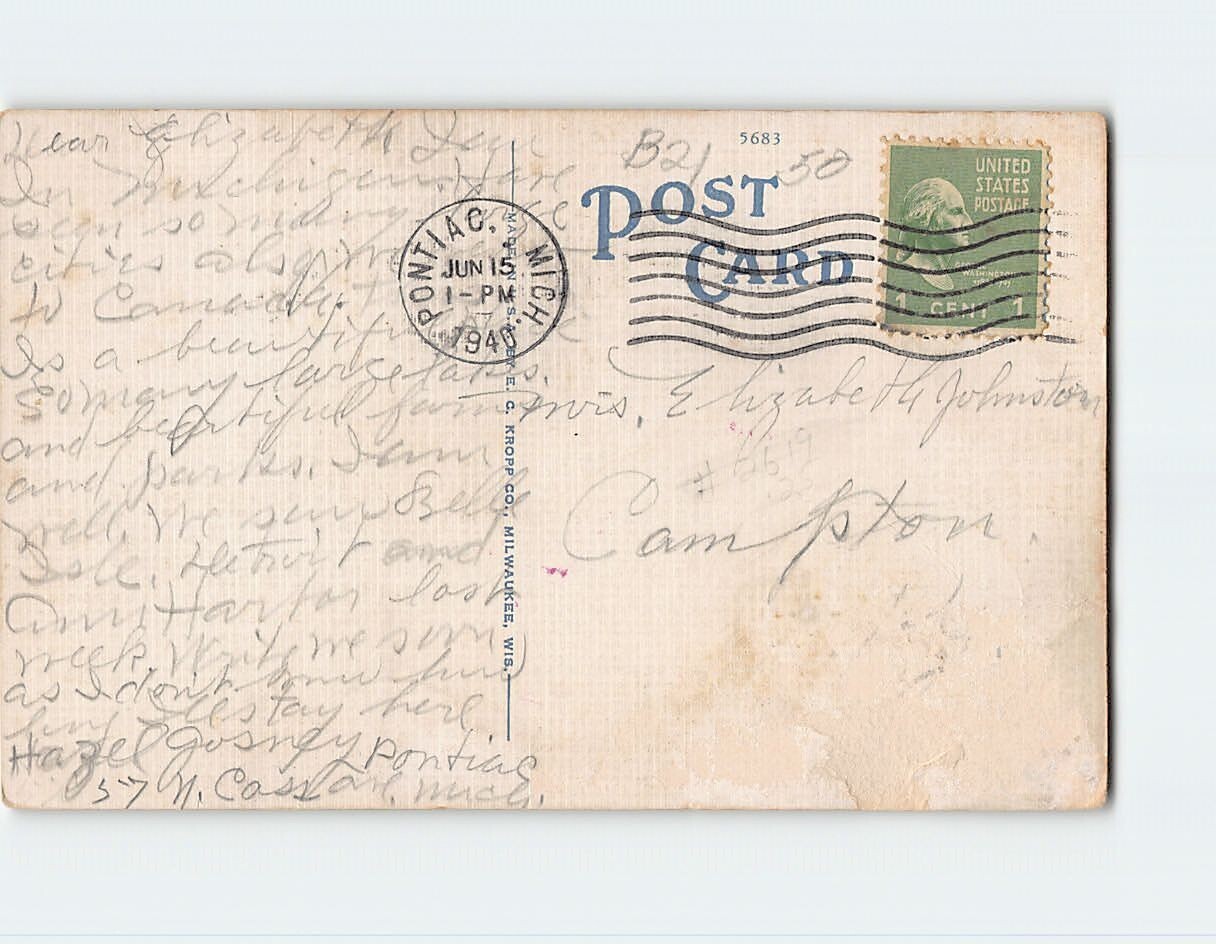 Dear Elizabeth I am
in Michigan. Have
seen so many large
cities also
to Canada.
Is a beautiful
so many large lakes.
and beautiful farms
and parks. I am
well. We seen Belle
Isle, Detroit and
Ann Harbor last
week. Write me soon
as I don't know how
long I'll stay here
Hazel Gosney Pontiac
57 N. Cass ave. Mich.
PONTIAC, MICH.
JUN 15
1-PM
1940
MADE IN U.S.A. BY E. C. KROPP CO., MILWAUKEE, WIS.
B21
5683
50
POST
CARD
UNITED
STATES
POSTAGE
GEORGE
WASHINGTON
1 CENT 1
Mrs. Elizabeth Johnston
Campton.